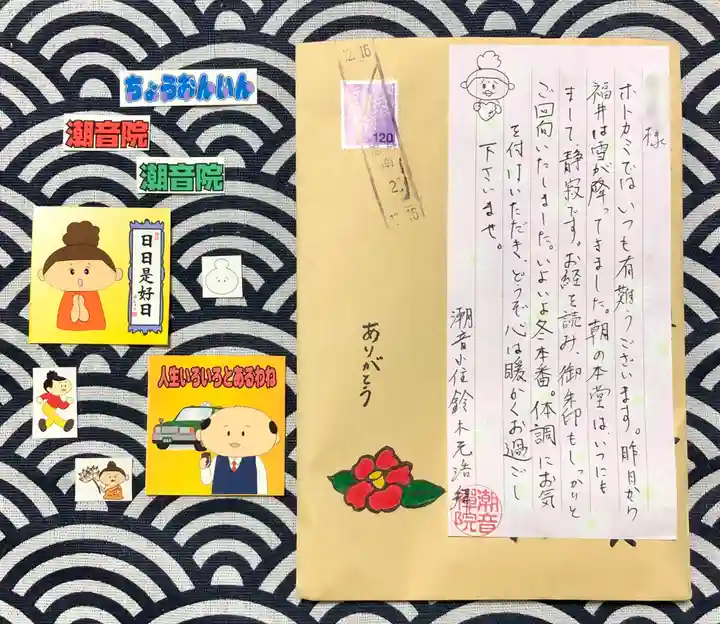 ちょうおんいん
潮音院
潮音院
日日是好日
人生いろいろとあるわね
12.16
120
12.16
ありがとう
様
ホトカミではいつも有難うございます。昨日から
福井は雪が降ってきました。朝の本堂はいつにも
まして静寂です。お経を読み、御朱印もしっかりと
ご回向いたしました。いよいよ冬本番。体調にお気
を付けいただき、どうぞ心は暖かくお過ごし
下さいませ。
潮音小住鈴木元浩拝
潮音禅院